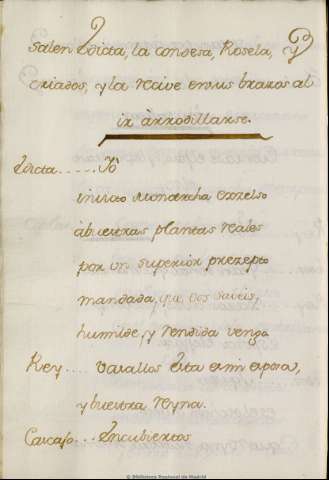 Salen Edicta, la condesa, Rosela, y
criados, y la recive en sus brazos al
ir àrrodillarse.
Edicta.....Yò
invicto Monarcha excelso
à buestras plantas reales
por un superior prezepto
mandada, que vos saveis,
humilde, y rendida vengo
Rey.... Vasallos Esta es mi esposa,
y buestra Reyna.
Carcaso... Encubiertos
© Biblioteca Nacional de Madrid